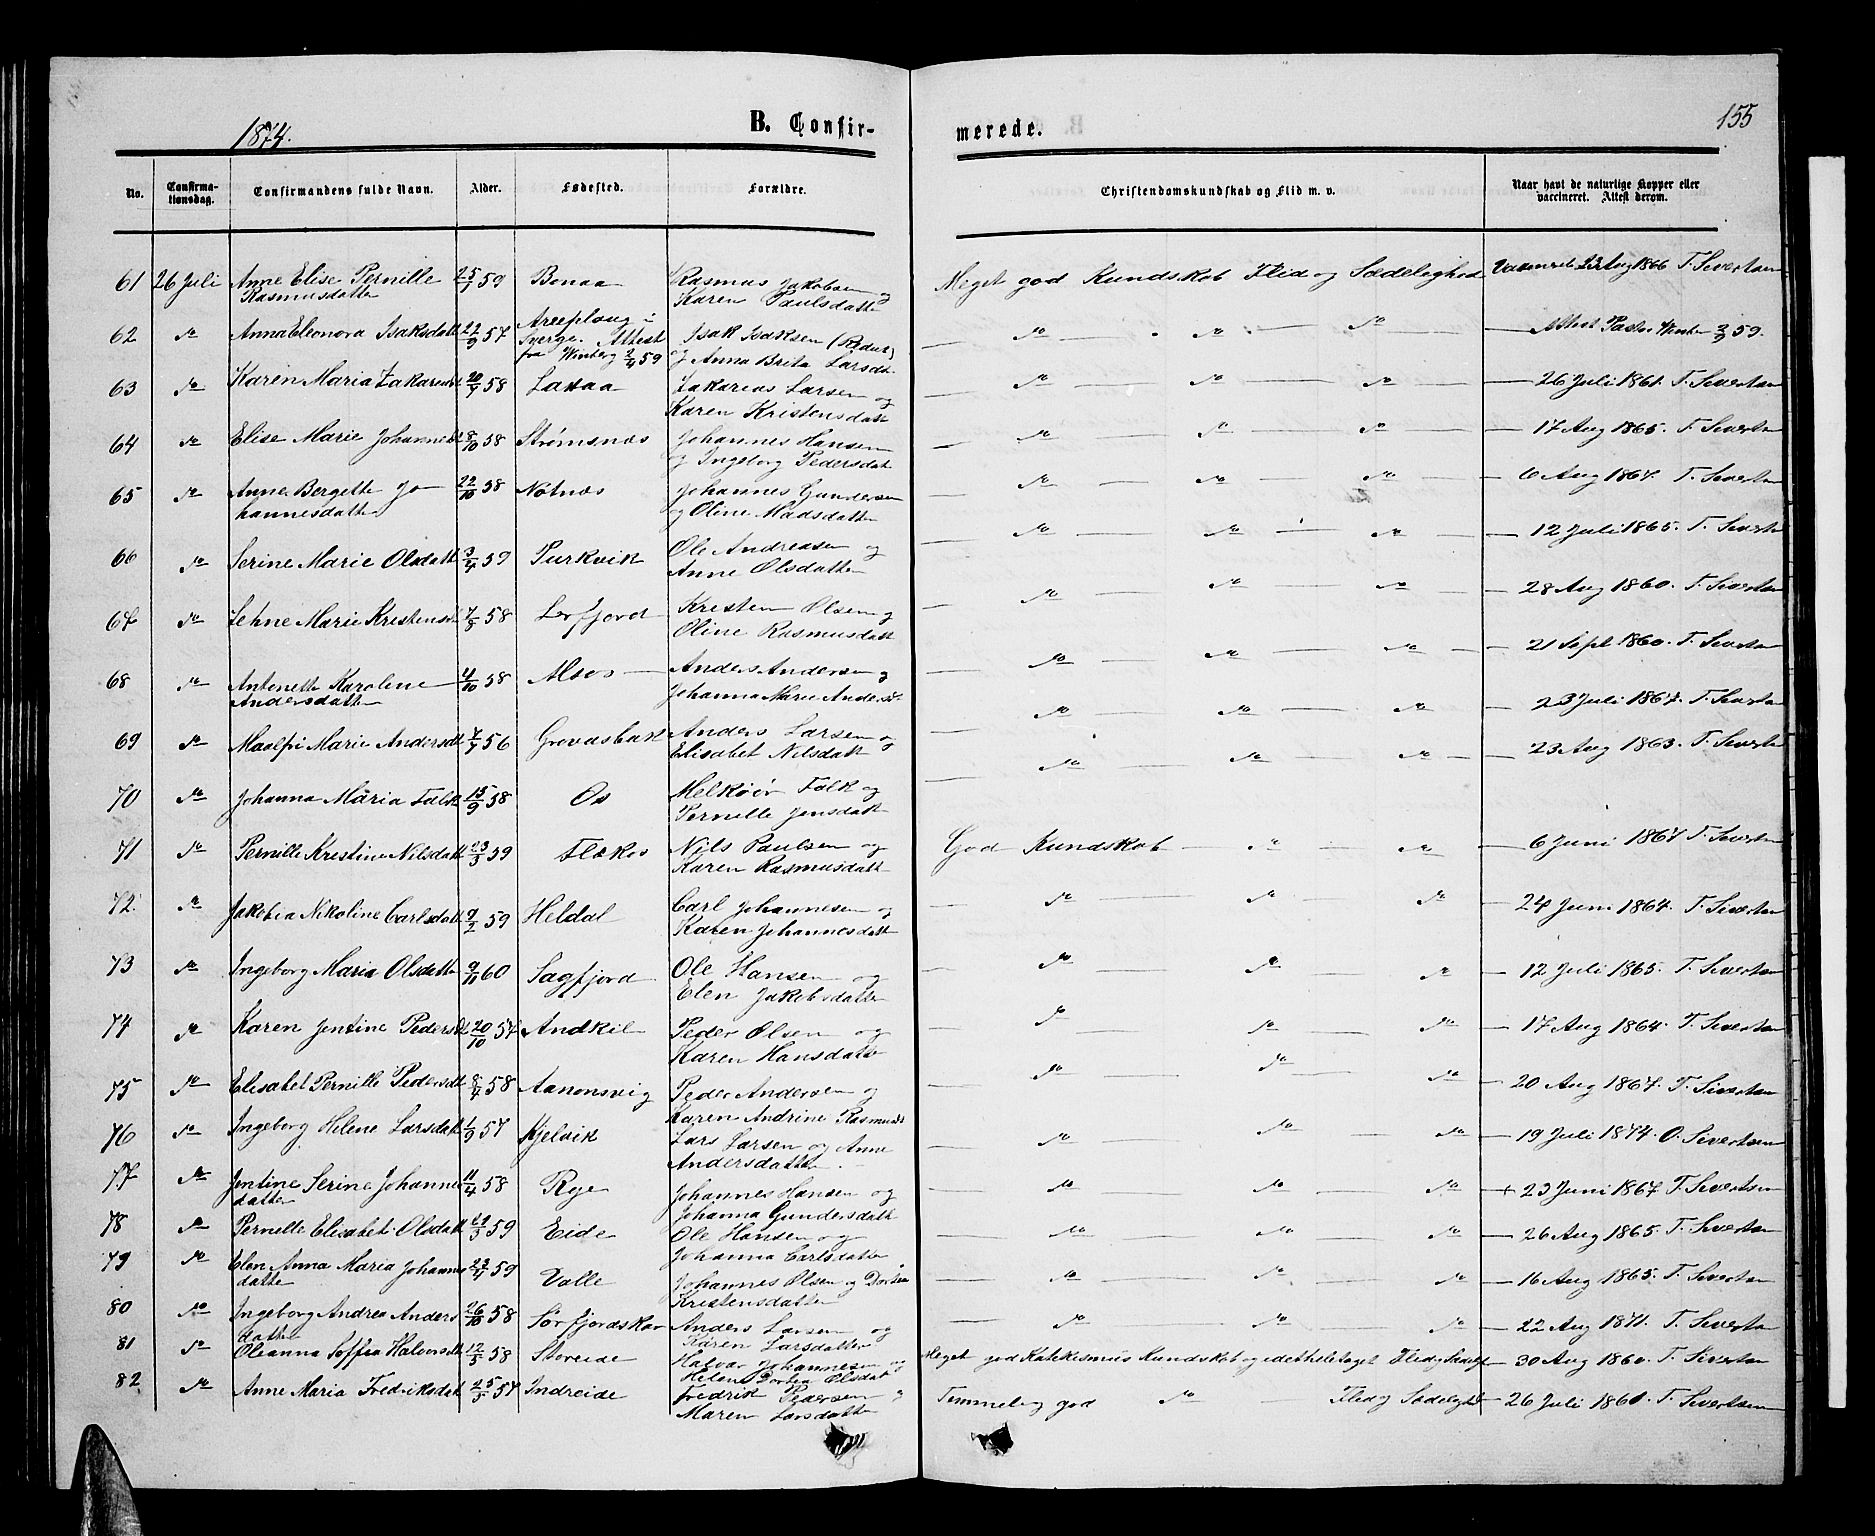 1874.
B. Confir-
merede.
155
No.
Confirma-
tionsdag.
Confirmandens fulde Navn.
Alder.
Fødested.
Forældre.
Christendomskundskab og Flid m. v.
Naar havt de naturlige Kopper eller
vaccineret. Attest derom.
61 26 Juli Anne Elise Pernille 25/7 59 Bonaa Rasmus Jakobsen og Meget god Kundskab Flid og Sædelighed 23 Aug 1866 T. Sivertsen
Rasmusdatter Karen Paulsdatter
62 do Anna Eleonora Isaksdatt 22/9 57 Areeplaug i Sverge. Attest fra Winberg 2/4 59 Isak Isaksen do do do Attest Pastor
og Anna Brita Larsdt.
63 do Karen Maria Zakariasdt 58 Laxaa Zakarias Larsen og do do do 26 Juli 1861. T. Sivertsen
Karen Kristensdatt
64 do Elise Marie Johannesdt 58 Strømsnæs Johannes Hansen do do do 17 Aug 1865. T. Sivertsen
og Ingeborg Pedersdatt
65 do Anne Bergette Jo- 22/10 58 Notnæs Johannes Gundersen do do do 6 Aug 1867. T. Sivertsen
hannesdatter og Oline Madsdatter
66 do Serine Marie Olsdatt 3/4 59 Purkvik Ole Andreasen og do do do 12 Juli 1865. T. Sivertsen
Anne Olsdatter
67 do Lehne Marie Kristensdt 58 Lerfjord Kristen Olsen og do do do 28 Aug 1860. T. Sivertsen
Oline Rasmusdatt
68 do Antonette Karoline 4/10 58 Moos Anders Andersen og do do do 21 Sept 1860. T. Sivertsen
Andersdatter Johanna Marie Andersdt.
69 do Maalfri Marie Andersdt 56 Grovasbak Anders Larsen og do do do 23 Juli 1867. T. Sivertsen
Elisabet Nilsdatt
70 do Johanna Maria Falk 15/9 58 Os Melkiør Falk og do do do 23 Aug 1863. T. Sivertsen
Pernille Jensdatt
71 do Pernille Kristine Nilsdatt 23/3 59 Flakos Nils Paulsen og God Kundskab do do 6 Juni 1867 T. Sivertsen
Karen Rasmusdatt
72. do Jakobia Nikoline Carlsdatt 9/2 59 Heldal Carl Johannesen og do do do 24 Juni 1867. T. Sivertsen
Karen Johannesdatt
73 do Ingeborg Maria Olsdatter 9/11 60 Sagfjord Ole Hansen og do do do 12 Juli 1865. T. Sivertsen
Elen Jakobsdatter
74 do Karen Jentine Pedersdt 20/10 57 Andkil Peder Olsen og do do do 17 Aug 1864. T. Sivertsen
Karen Hansdatter
75 do Elisabet Pernille Pedersdt 8/4 58 Aanonsvig Peder Andersen og do do do 20 Aug 1867. T. Sivertsen
Karen Andrine Rasmusdt
76 do Ingeborg Helene Larsdatt 1/9 57 Kjelvik Lars Larsen og Anne do do do 19 Juli 1874. O. Sivertsen
Andersdatter
77 do Jentine Serine Johannes 11/4 58 Røje Johannes Hansen og do do do + 23 Juni 1867 T. Sivertsen
datter Johanna Gundersdatt
78 do Pernelle Elisabet Olsdatt 59 Eide Ole Hansen og do do do 26 Aug 1865. T. Sivertsen
Johanna Carlsdatter
79 do Elen Anna Maria Johannes 23/4 59 Valle Johannes Olsen og Dortea do do do 16 Aug 1865. T. Sivertsen
datter Kristensdatter
80 do Ingeborg Andrea Anders 26/10 58 Sørfjordskar Anders Larsen og do do do 22 Aug 1871. T. Sivertsen
datter Karen Larsdatter
81 do Oleanna Soffia Halvorsdt 12/5 58 Storeide Halvor Johannesen og Meget god Katekismus Kundskab og idetheletaget Flid og Sædelighed 30 Aug 1860. T. Sivertsen
Helena Dortea Olsdatt
82 do Anne Maria Fredriksdatt 25/5 57 Indreide Fredrik Pedersen og Temmelig god do Flid og Sædelighed 26 Juli 1861. T. Sivertsen
Maren Larsdatter